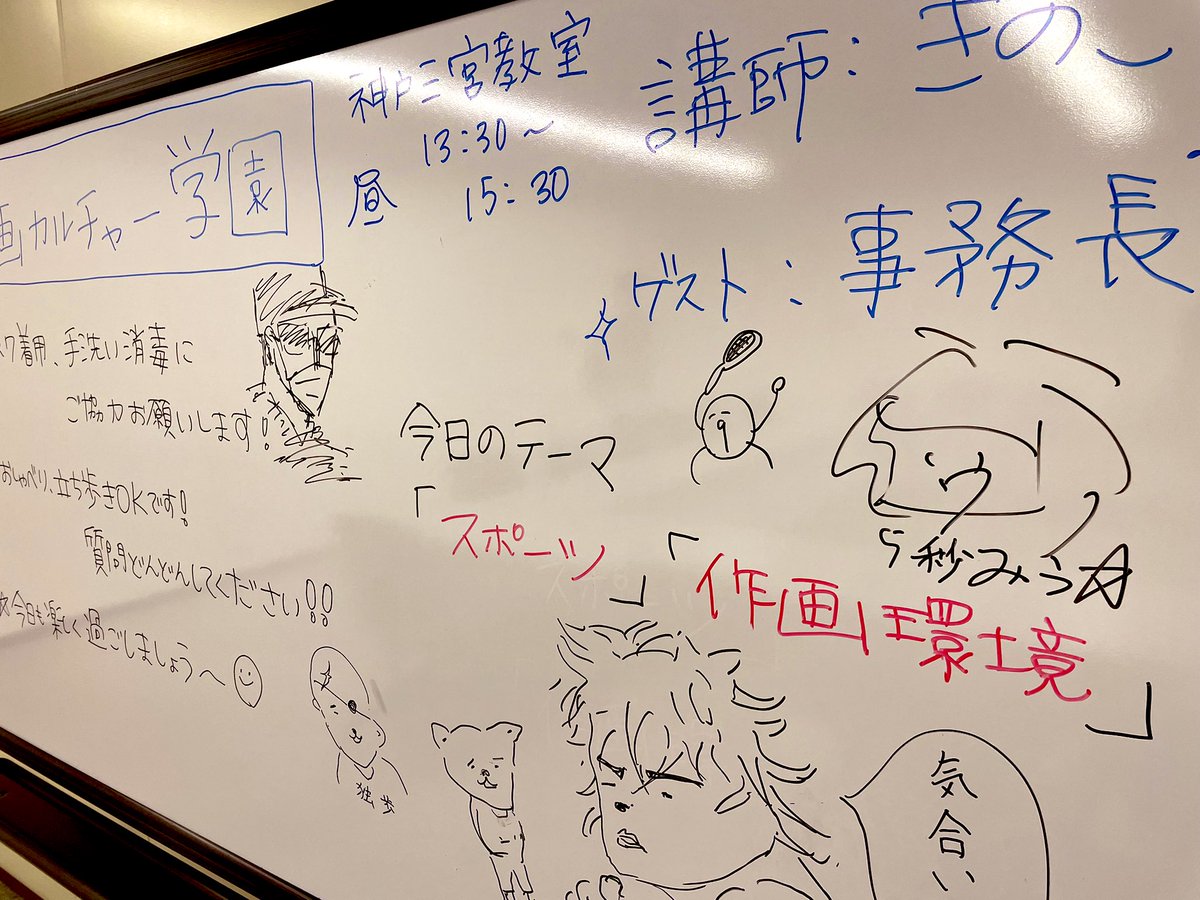 画カルチャー学園
神戸三宮教室
13:30~
昼 15:30
講師:きのこ
ゲスト:事務長
スク着用、手洗い消毒に
ご協力お願いします!
おしゃべり、立ち歩きOKです!
質問どんどんしてください!!
☆今日も楽しく過ごしましょう~
今日のテーマ
「スポーツ」
「作画環境」
5秒みう☆
独歩
気合い